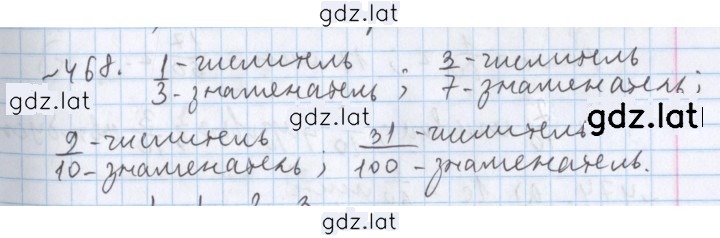 gdz.lat
~468. 1 - числитель ; 3 - числитель
3 - знаменатель ; 7 - знаменатель ;
gdz.lat
gdz.lat
gdz.lat
9 - числитель ; 31 - числитель
10 - знаменатель ; 100 - знаменатель.
gdz.lat